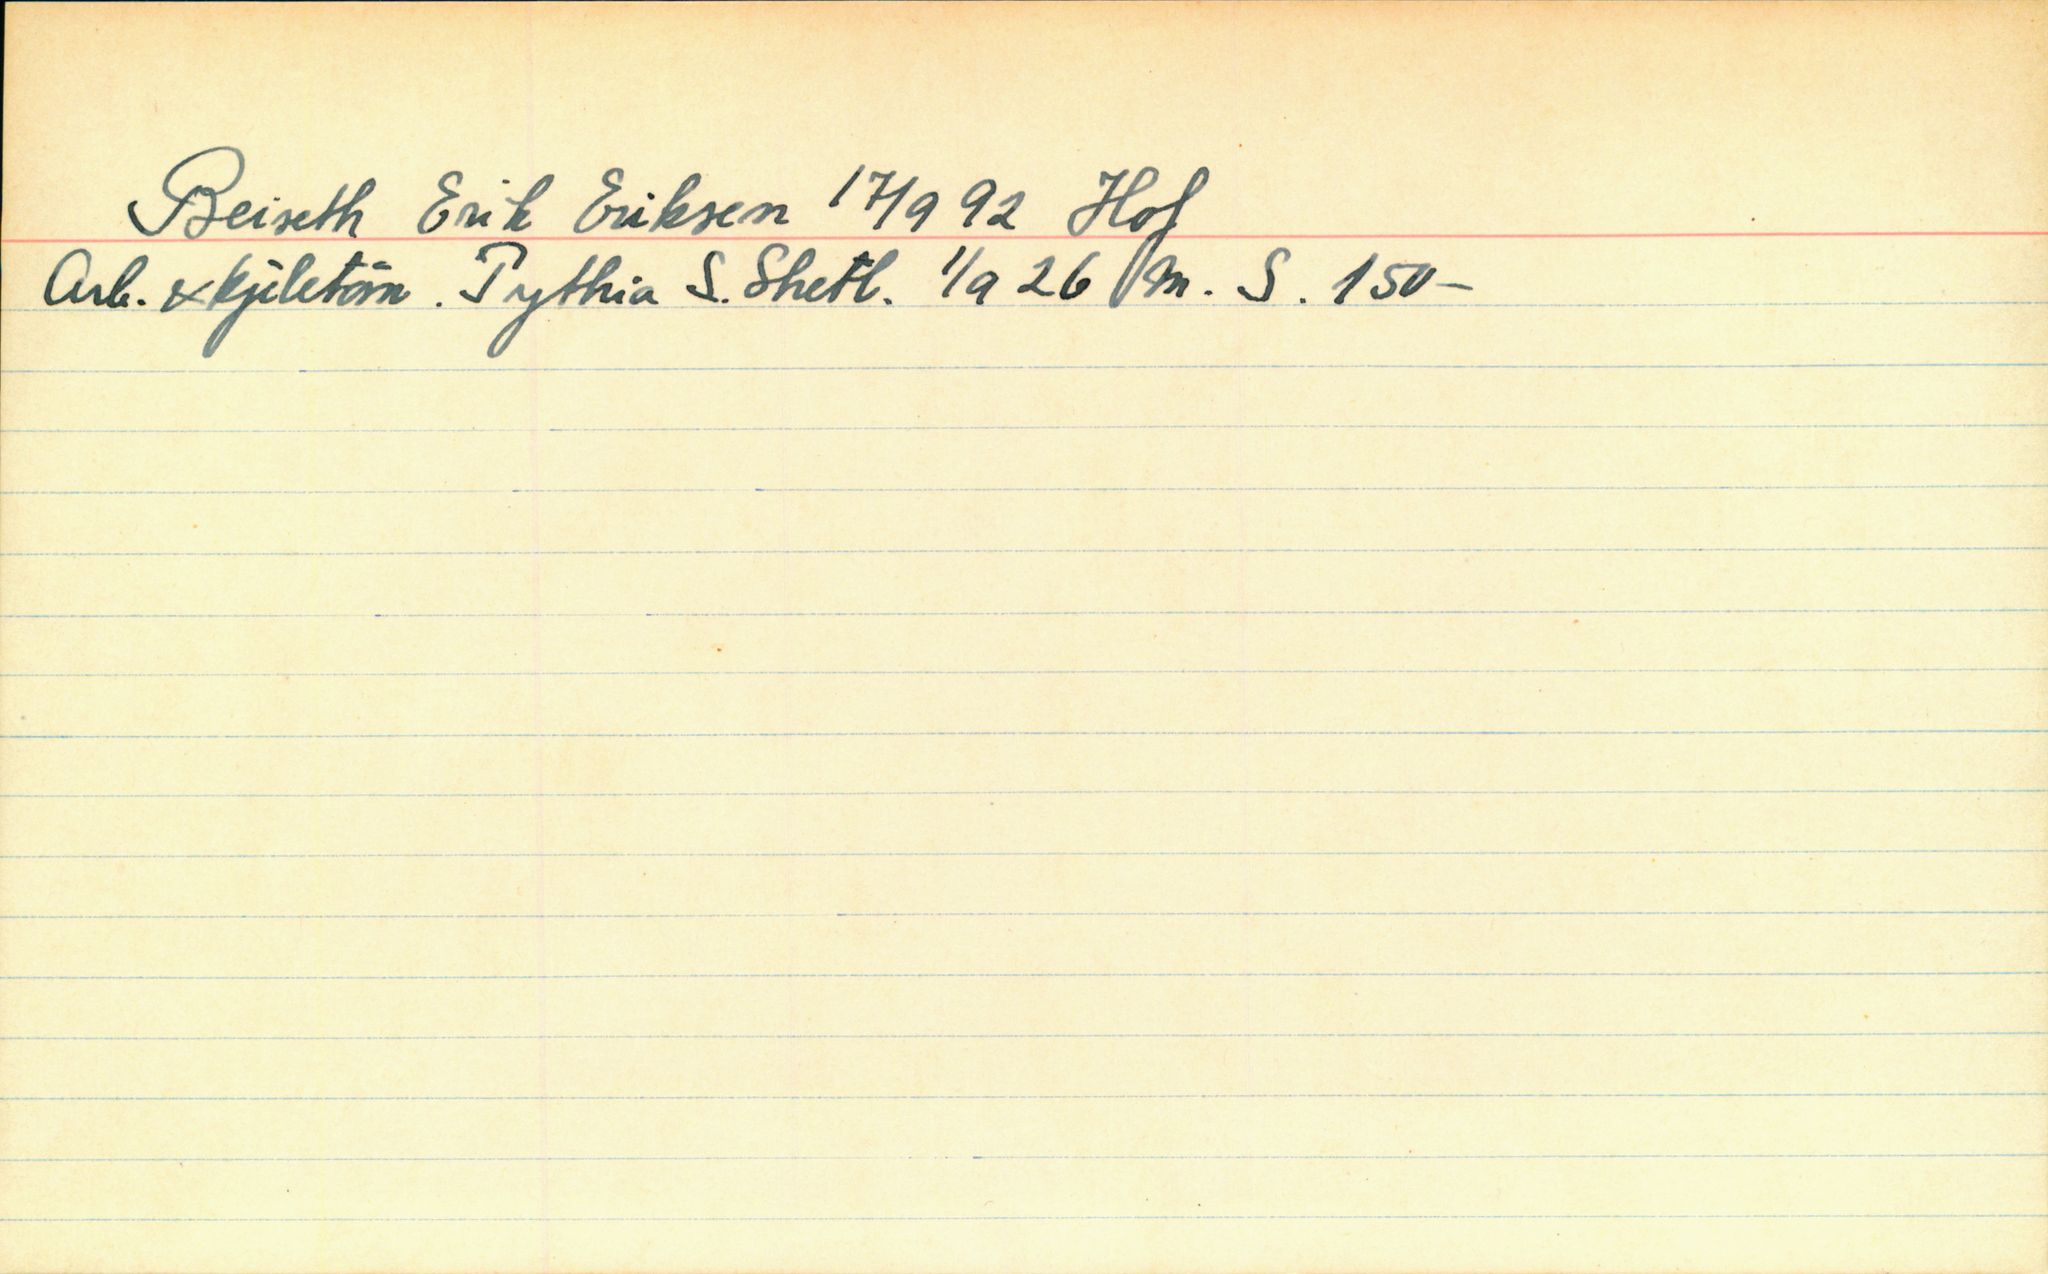 Beiseth Erik Eriksen 17/9 92 Hof
Arb. & kjeletöm. Pythia S. Shetl. 1/9 26 M. S. 150-